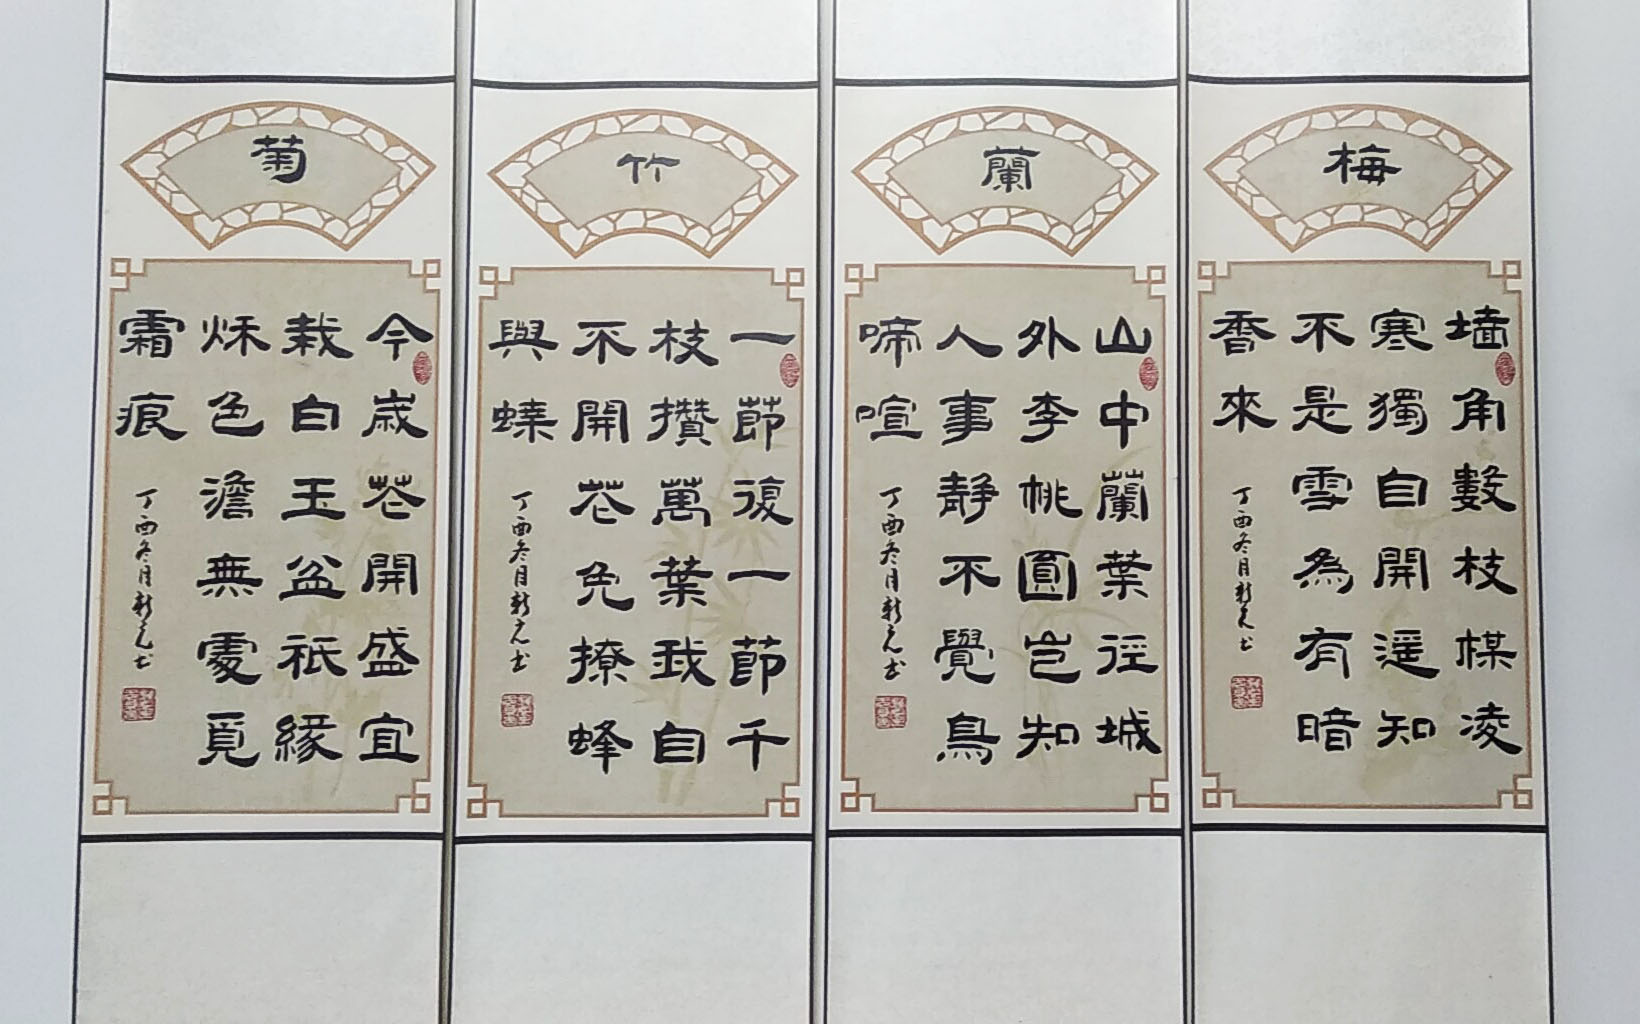 梅
墙角數枝楳凌
寒獨自開遥知
不是雪為有暗
香來
丁酉冬月新元书
蘭
山中蘭葉径城
外李桃園岂知
人事靜不覺鳥
啼喧
丁酉冬月新元书
竹
一節復一節千
枝攢萬葉我自
不開花免撩蜂
與蝶
丁酉冬月新元书
菊
今歲花開盛宜
栽白玉盆祇緣
秌色澹無處覓
霜痕
丁酉冬月新元书